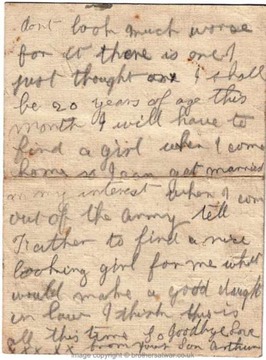 dont look much worse
for it there is one I
just thought on I shall
be 20 years of age this
month I will have to
find a girl when I come
home so I can get married
in my interest when I com
out of the army tell
Father to find a nice
looking girl for me what
would make a good daught
in law I think this is
all this time So Goodbye Love
from your Son Arthur
Copyright © brothersatwar.co.uk